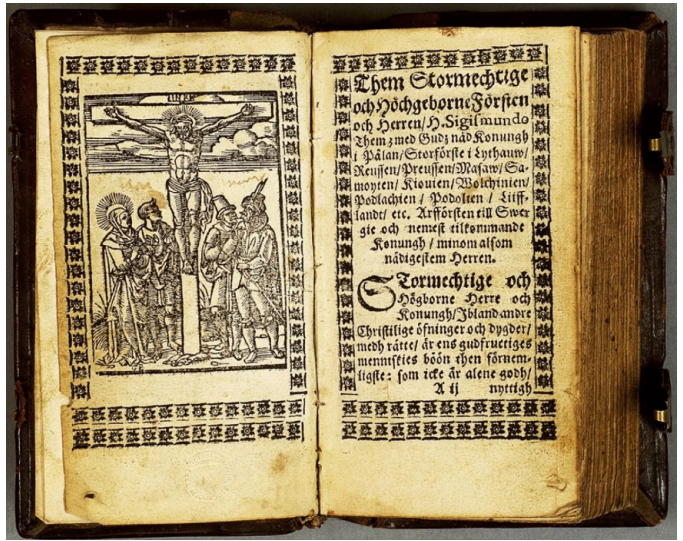 INRI
Them Stormechtige
och Höchgborne Försten
och Herren/ H. Sigismundo
Them 3 med Gudz nåd Konungh
i Pålan/ Storförste i Lythauw/
Reussen/ Preussen/ Masaw/ Sa-
moyten/ Kiouien/ Wolehinien/
Podlachien / Podolien / Liiff-
landt/ etc. Arfförsten till Swer
gie och nemest tilkommande
Konungh / minom alsom
nädigestem Herren.
STormechtige och
Högborne Herre och
Konungh/ Jbland andre
Christilige öfninger och dygder/
medh rätte/ är ens gudfructiges
menniskies böön then förnem-
ligste: som icke är alene godh/
A ij nyttigh